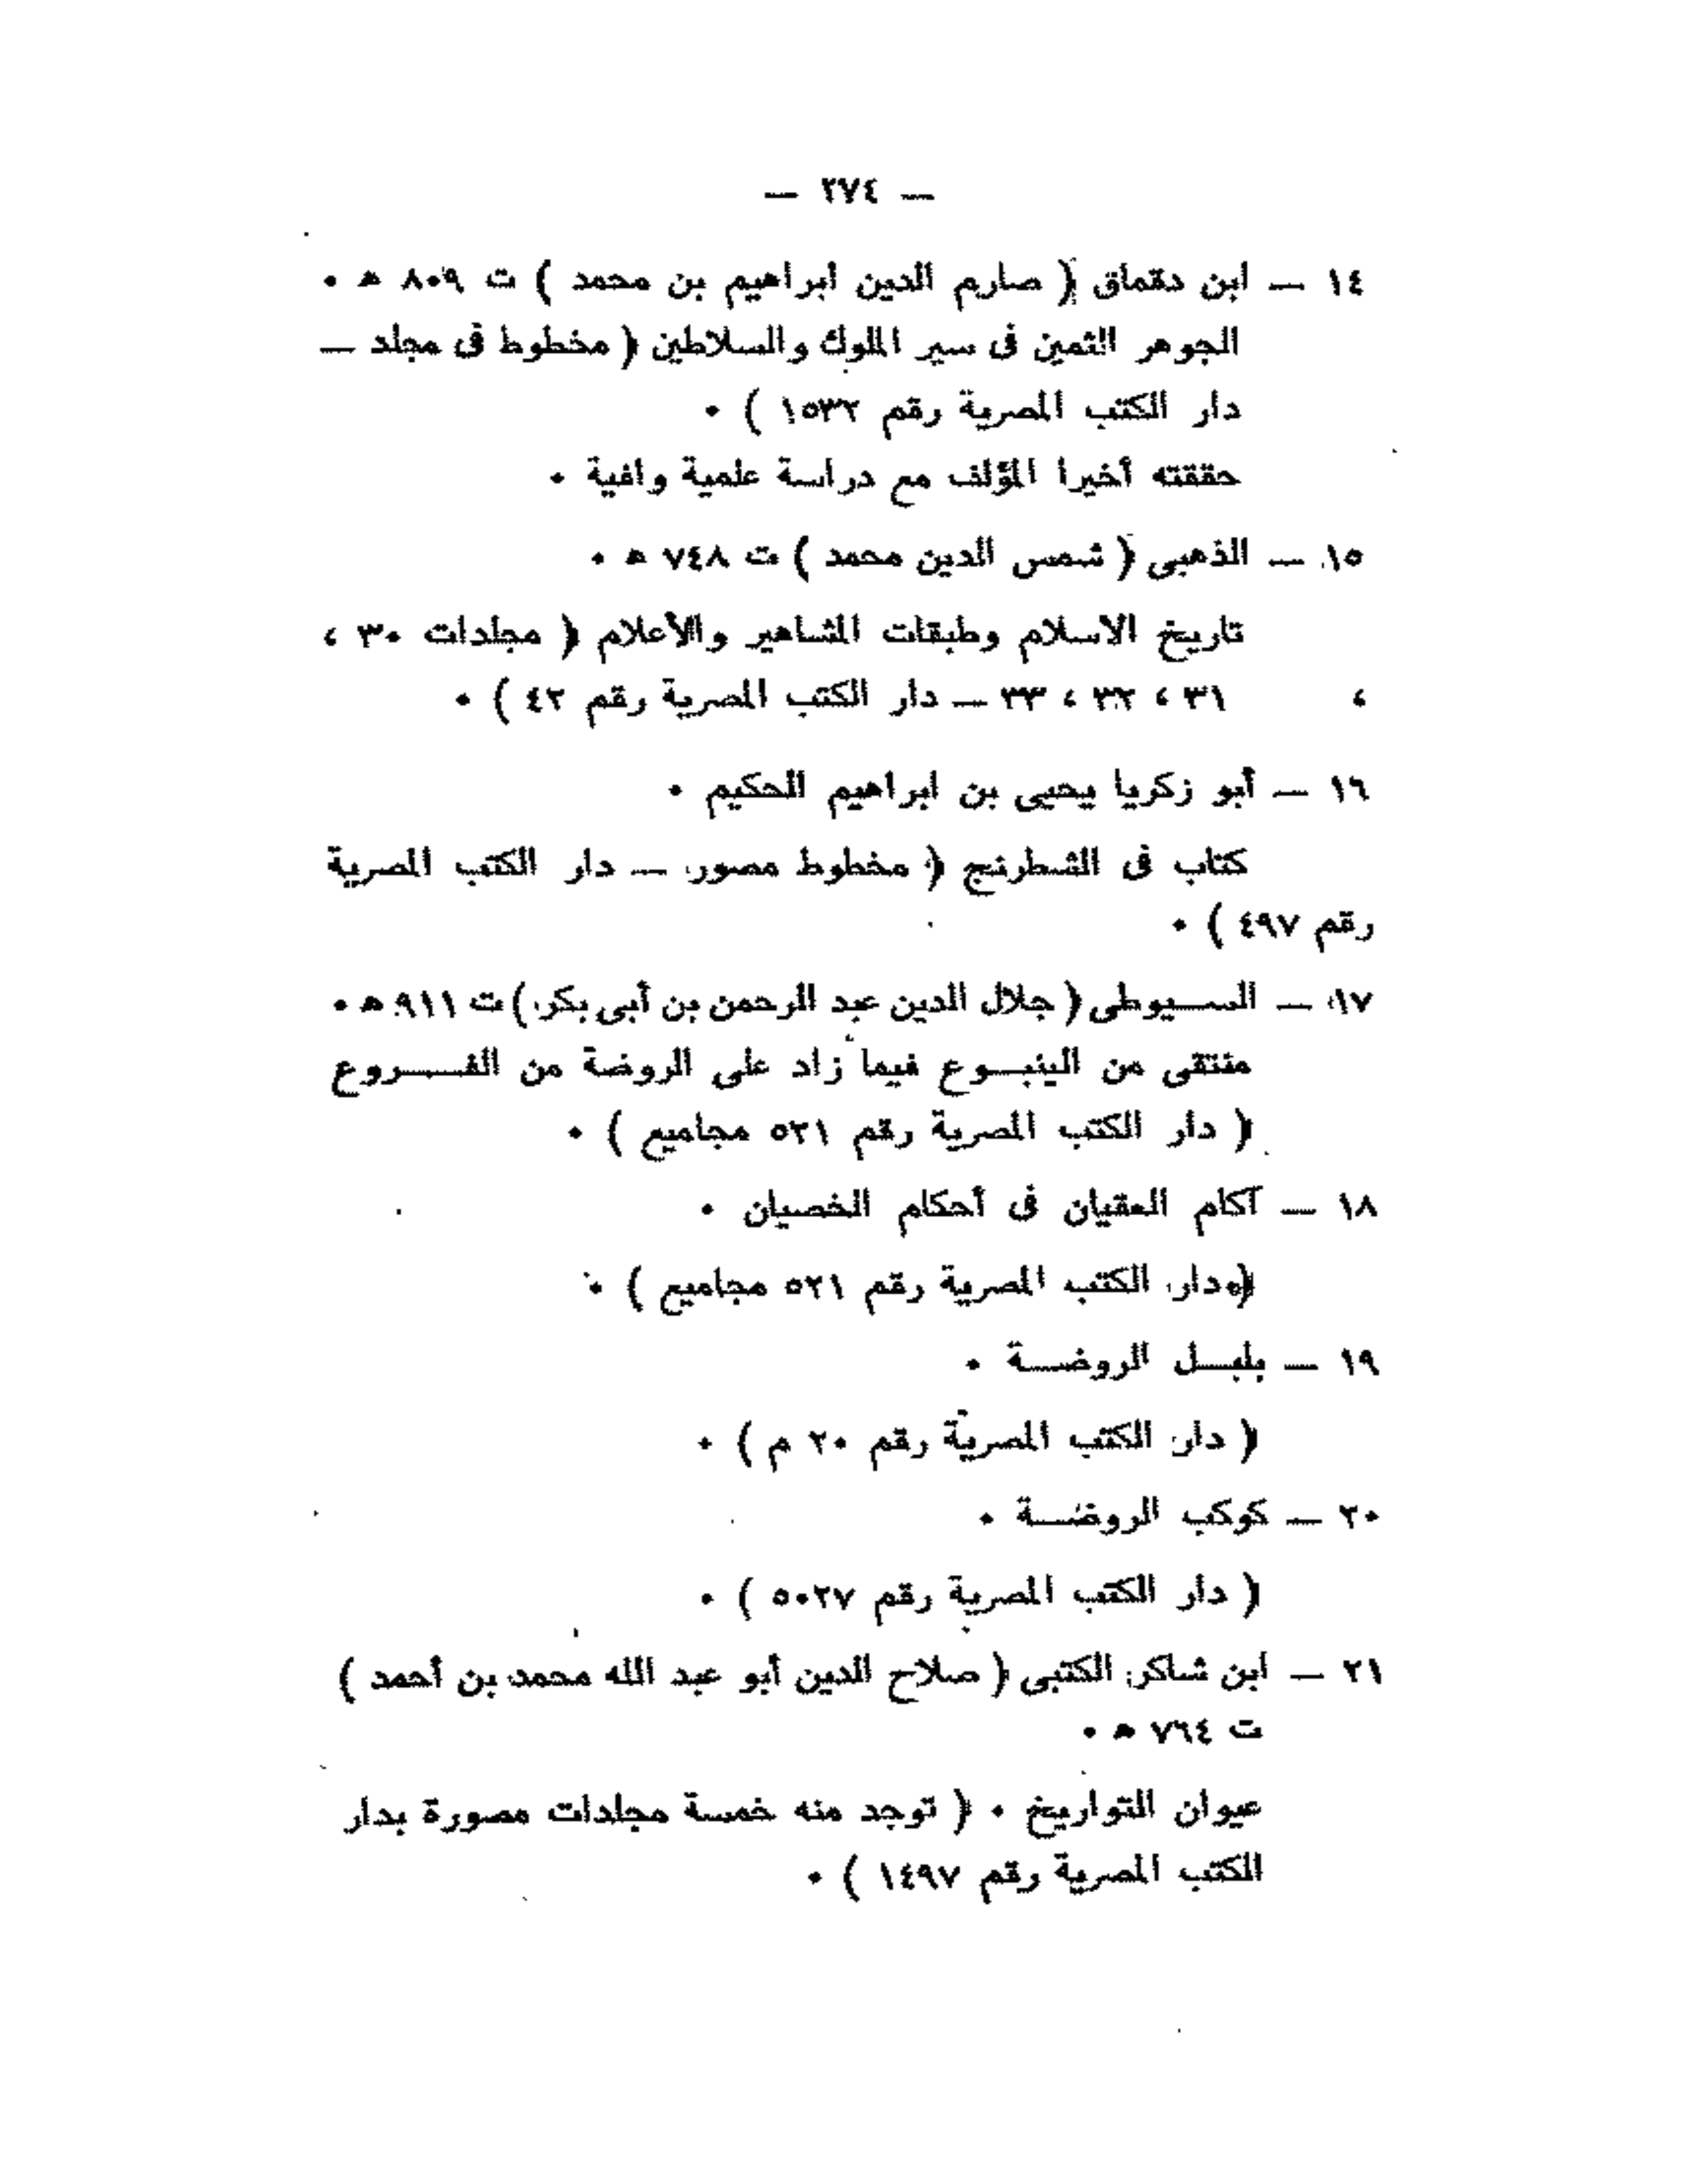 — ٢٧٤ —
١٤ — ابن دقماق ( صارم الدين ابراهيم بن محمد ) ت ٨٠٩ ه ٠
الجوهر الثمين فى سير الملوك والسلاطين ( مخطوط فى مجلد —
دار الكتب المصرية رقم ١٥٣٢ ) ٠
حققته أخيرا المؤلف مع دراسة علمية وافية ٠
١٥ — الذهبى ( شمس الدين محمد ) ت ٧٤٨ ه ٠
تاريخ الاسلام وطبقات المشاهير والأعلام ( مجلدات ٣٠ ،
، ٣١ ، ٣٢ ، ٣٣ — دار الكتب المصرية رقم ٤٢ ) ٠
١٦ — أبو زكريا يحيى بن ابراهيم الحكيم ٠
كتاب فى الشطرنج ( مخطوط مصور — دار الكتب المصرية
رقم ٤٩٧ ) ٠
١٧ — السيوطى ( جلال الدين عبد الرحمن بن أبى بكر ) ت ٩١١ ه ٠
منتقى من الينبوع فيما زاد على الروضة من الفروع
( دار الكتب المصرية رقم ٥٢١ مجاميع ) ٠
١٨ — آكام العقيان فى أحكام الخصيان ٠
( دار الكتب المصرية رقم ٥٢١ مجاميع ) ٠
١٩ — بلبل الروضة ٠
( دار الكتب المصرية رقم ٢٠ م ) ٠
٢٠ — كوكب الروضة ٠
( دار الكتب المصرية رقم ٥٠٢٧ ) ٠
٢١ — ابن شاكر الكتبى ( صلاح الدين أبو عبد الله محمد بن أحمد )
ت ٧٦٤ ه ٠
عيوان التواريخ ٠ ( توجد منه خمسة مجلدات مصورة بدار
الكتب المصرية رقم ١٤٩٧ ) ٠